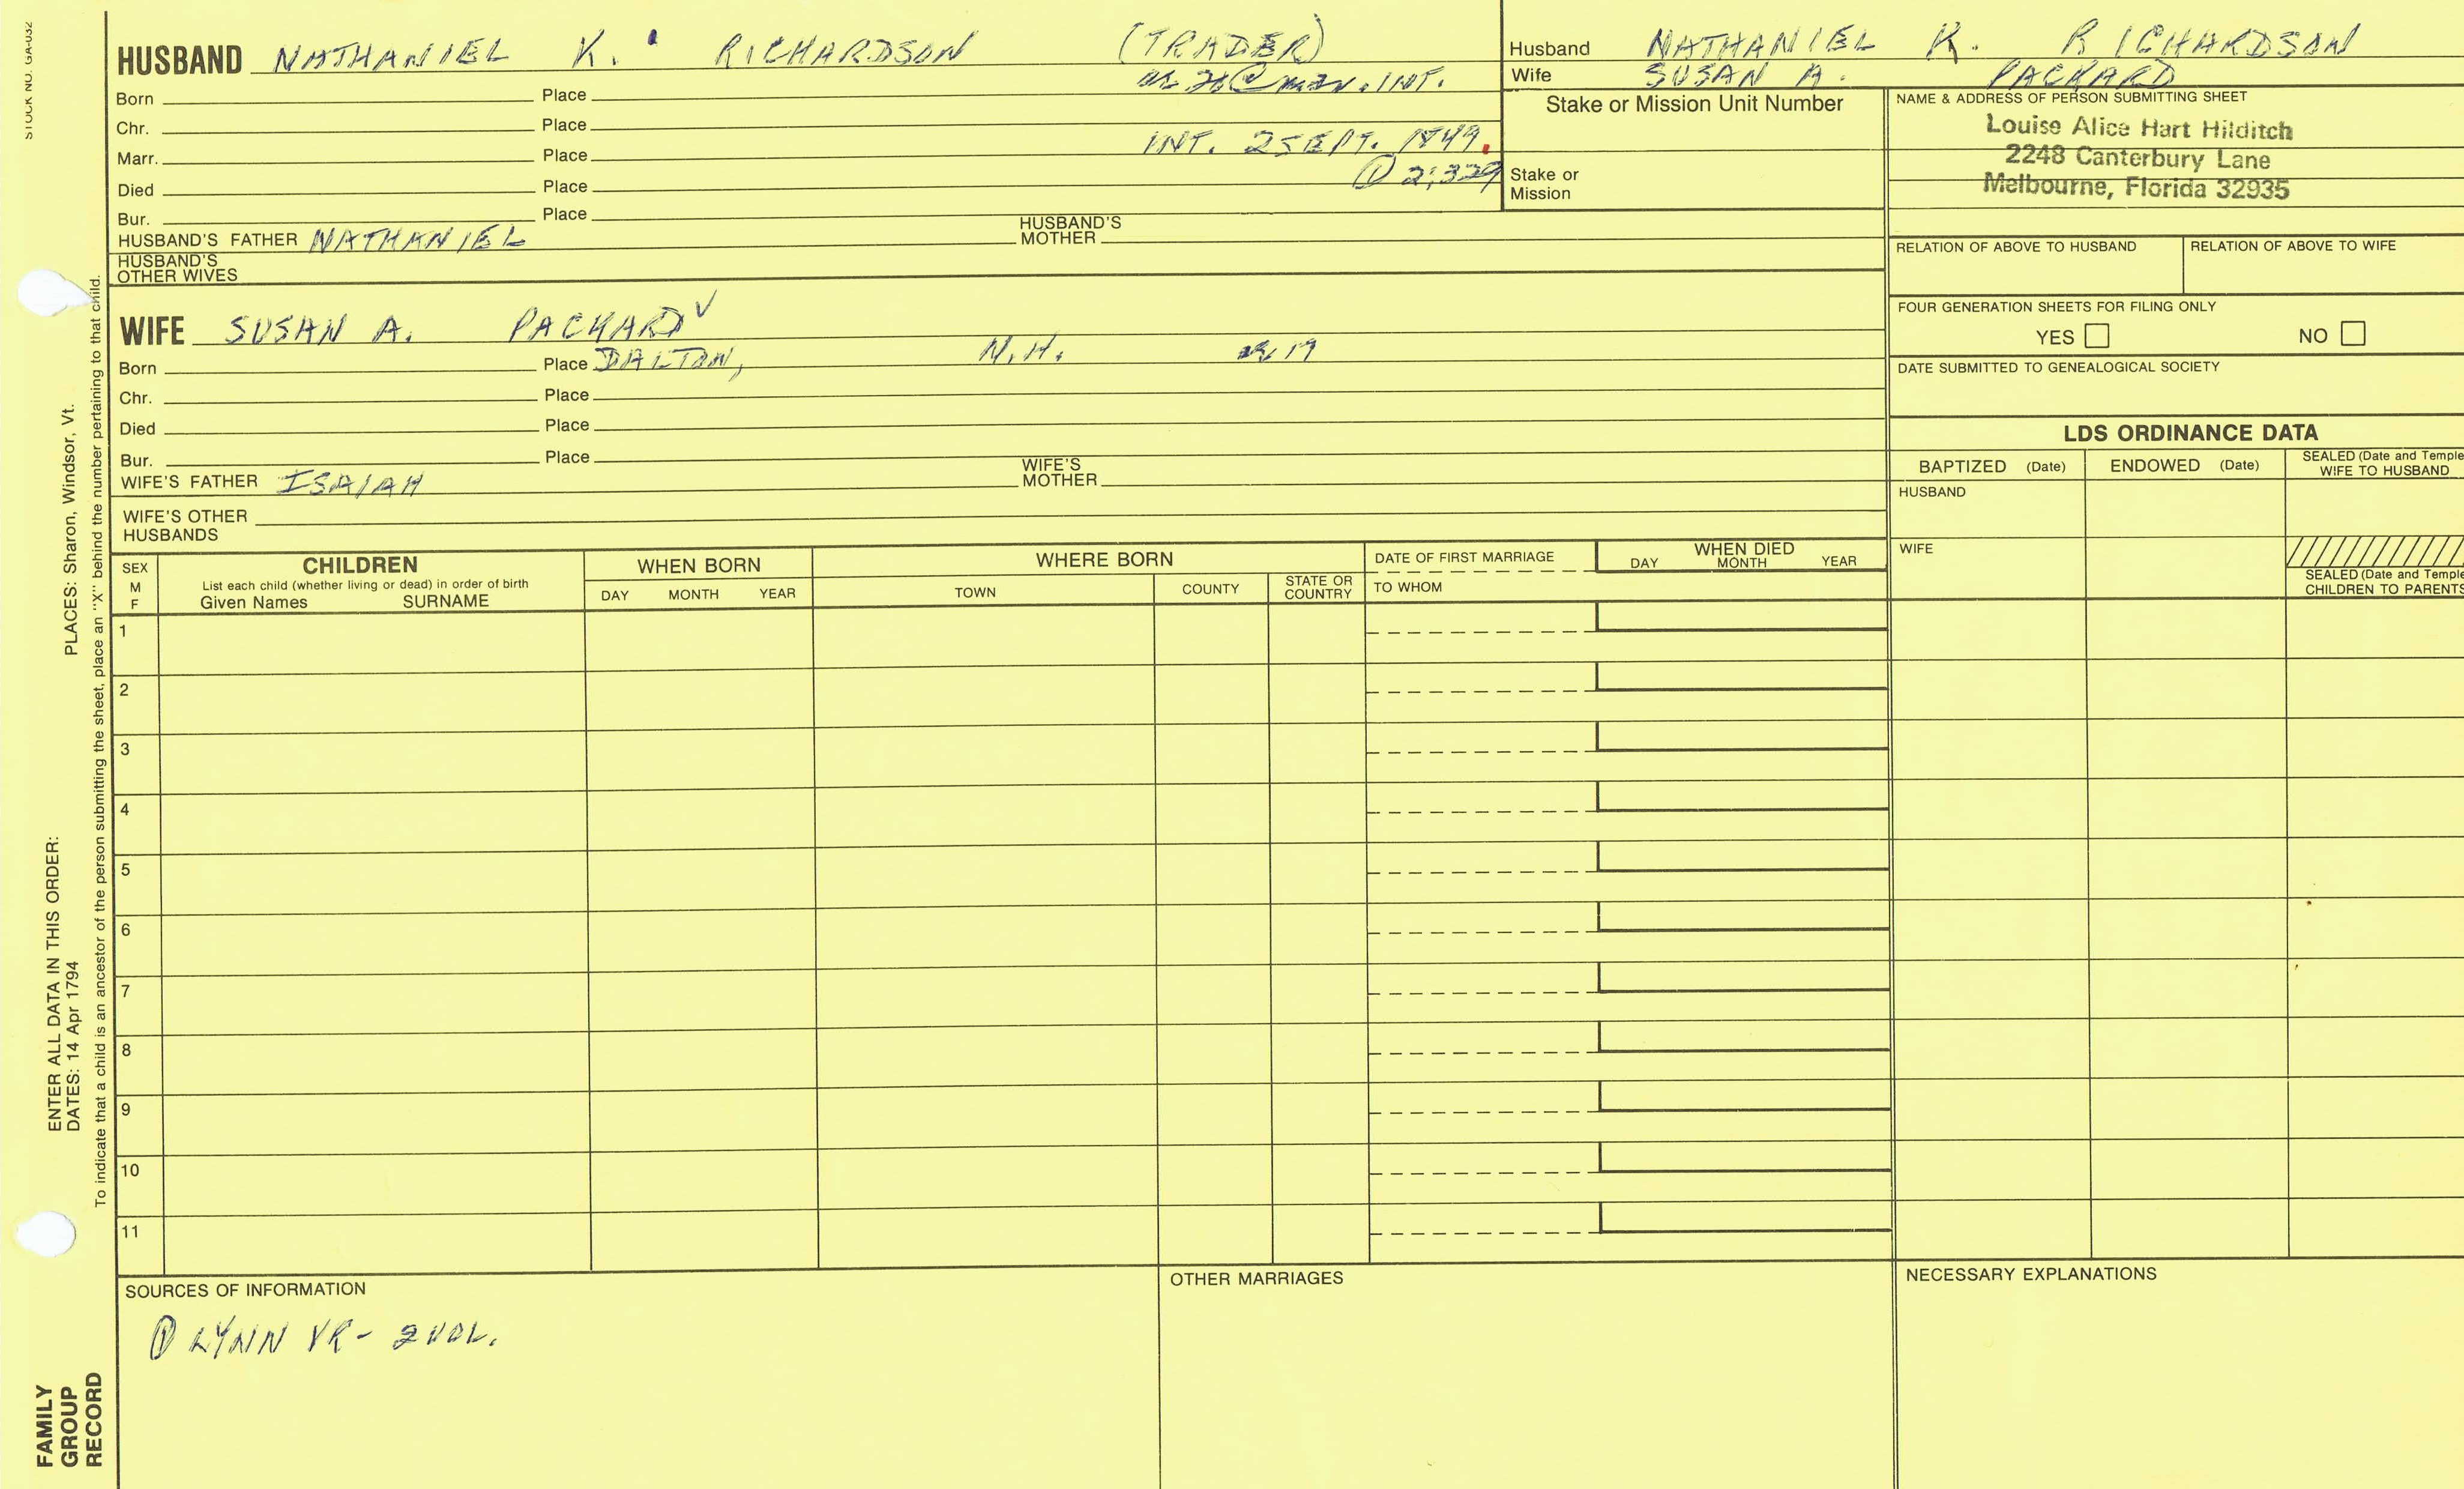 STOCK NO. GA-032
HUSBAND NATHANIEL K. RICHARDSON (TRADER)
@ mar. INT.
Born Place
Chr. Place
Marr. Place INT. 2 SEPT. 1849.
Died Place ① 2:329
Bur. Place
HUSBAND'S FATHER NATHANIEL HUSBAND'S MOTHER
HUSBAND'S OTHER WIVES
WIFE SUSAN A. PACKARD √
Born Place DALTON, N.H. 19
Chr. Place
Died Place
Bur. Place
WIFE'S FATHER ISAIAH WIFE'S MOTHER
WIFE'S OTHER HUSBANDS
Husband NATHANIEL K. RICHARDSON
Wife SUSAN A. PACKARD
Stake or Mission Unit Number
Stake or Mission
NAME & ADDRESS OF PERSON SUBMITTING SHEET
Louise Alice Hart Hilditch
2248 Canterbury Lane
Melbourne, Florida 32935
RELATION OF ABOVE TO HUSBAND RELATION OF ABOVE TO WIFE
FOUR GENERATION SHEETS FOR FILING ONLY
YES NO
DATE SUBMITTED TO GENEALOGICAL SOCIETY
LDS ORDINANCE DATA
BAPTIZED (Date) ENDOWED (Date) SEALED (Date and Temple
WIFE TO HUSBAND
HUSBAND
WIFE
SEALED (Date and Temple
CHILDREN TO PARENTS
SEX
M
F
CHILDREN
List each child (whether living or dead) in order of birth
Given Names SURNAME
WHEN BORN
DAY MONTH YEAR
WHERE BORN
TOWN COUNTY STATE OR COUNTRY
DATE OF FIRST MARRIAGE
TO WHOM
WHEN DIED
DAY MONTH YEAR
1
2
3
4
5
6
7
8
9
10
11
SOURCES OF INFORMATION
① LYNN VR- 2 VOL.
OTHER MARRIAGES
NECESSARY EXPLANATIONS
FAMILY
GROUP
RECORD
ENTER ALL DATA IN THIS ORDER:
DATES: 14 Apr 1794 PLACES: Sharon, Windsor, Vt.
To indicate that a child is an ancestor of the person submitting the sheet, place an "X" behind the number pertaining to that child.